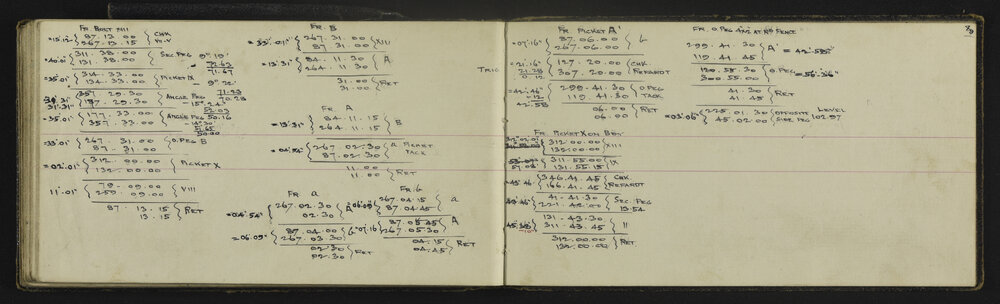 FR BOST XIII
=15.12" { 87. 13. 00 } CHK
267. 13. 15 } XII-V
=40.01" { 311. 38. 00 } SEC. PEG 9° 10'
131. 38. 00 } 72.63
71.67
=35.01" { 314. 33. 00 } PICKET IX 9° 22'
134. 33. 00 } 71.23
{ 357. 29. 30 } ANGLE PEG 70.28
31.31" { 187. 29. 30 } -15° 24'
52.03
=35.01 { 177. 33. 00 } ANGLE PEG 50.16
357. 33. 00 } 14° 30'
51.65
50.00
=33.01" { 267. 31. 00 } O. PEG B
87. 31. 00
=02.01" { 312. 00. 00 } PICKET X
132. 00. 00
11.01" { 79. 09. 00 } VIII
259. 09. 00
87. 13. 15 } RET
13. 15
FR. B
=33.01" { 267. 31. 00 } XIII
87. 31. 00
=13.31" { 84. 11. 30 } A
264. 11. 30
31. 00 } RET
31. 00
TRIG
FR A
=13.31" { 84. 11. 15 } B
264. 11. 15
=04.54" { 267. 02. 30 } a PICKET
87. 02. 30 } TACK
11. 00 } RET
11. 00
FR a
=04.54" { 267. 02. 30 } A
02. 30
=06.09" { 87. 04. 00 } b
267. 03. 30
02. 30 } RET
02. 30
FR. b
06.09" { 267. 04. 15 } a
87. 04. 45
=07.16 { 87. 05. 45 } A
267. 05. 30
04. 15 } RET
04. 45
FR PICKET A'
=07.16" { 87. 06. 00 } b
267. 06. 00
=21.16" { 127. 20. 00 } CHK
21.28 307. 20. 00 } REPARDT
0.12
=42.46" { 299. 41. 30 } O. PEG
-12 119. 41. 30 } TACK
42.58
06. 00 } RET
06. 00
FR. PICKET X ON BDY
32.02.01" { 312. 00. 00 } XIII
132. 00. 00
{ 311. 55. 00 } IX
57.08" 131. 55. 15
=45.46" { 346. 41. 45 } CHK
166. 41. 45 } REPARDT
{ 41. 41. 30 } SEC. PEG
221. 42. 00 } 13.54
45.38" { 131. 43. 30 } 11
311. 43. 45
312. 00. 00 } RET
132. 00. 00
FR. O. PEG 4X2 AT RD FENCE
79
299. 41. 30 } A' = 42.58"
119. 41. 45
120. 58. 30 } O. PEG = 56.36"
300. 55. 00
41. 30 } RET
41. 45
=03.06" { 225. 01. 30 } OPPOSITE LEVEL
45. 02. 00 } SIDE PEG 102.97